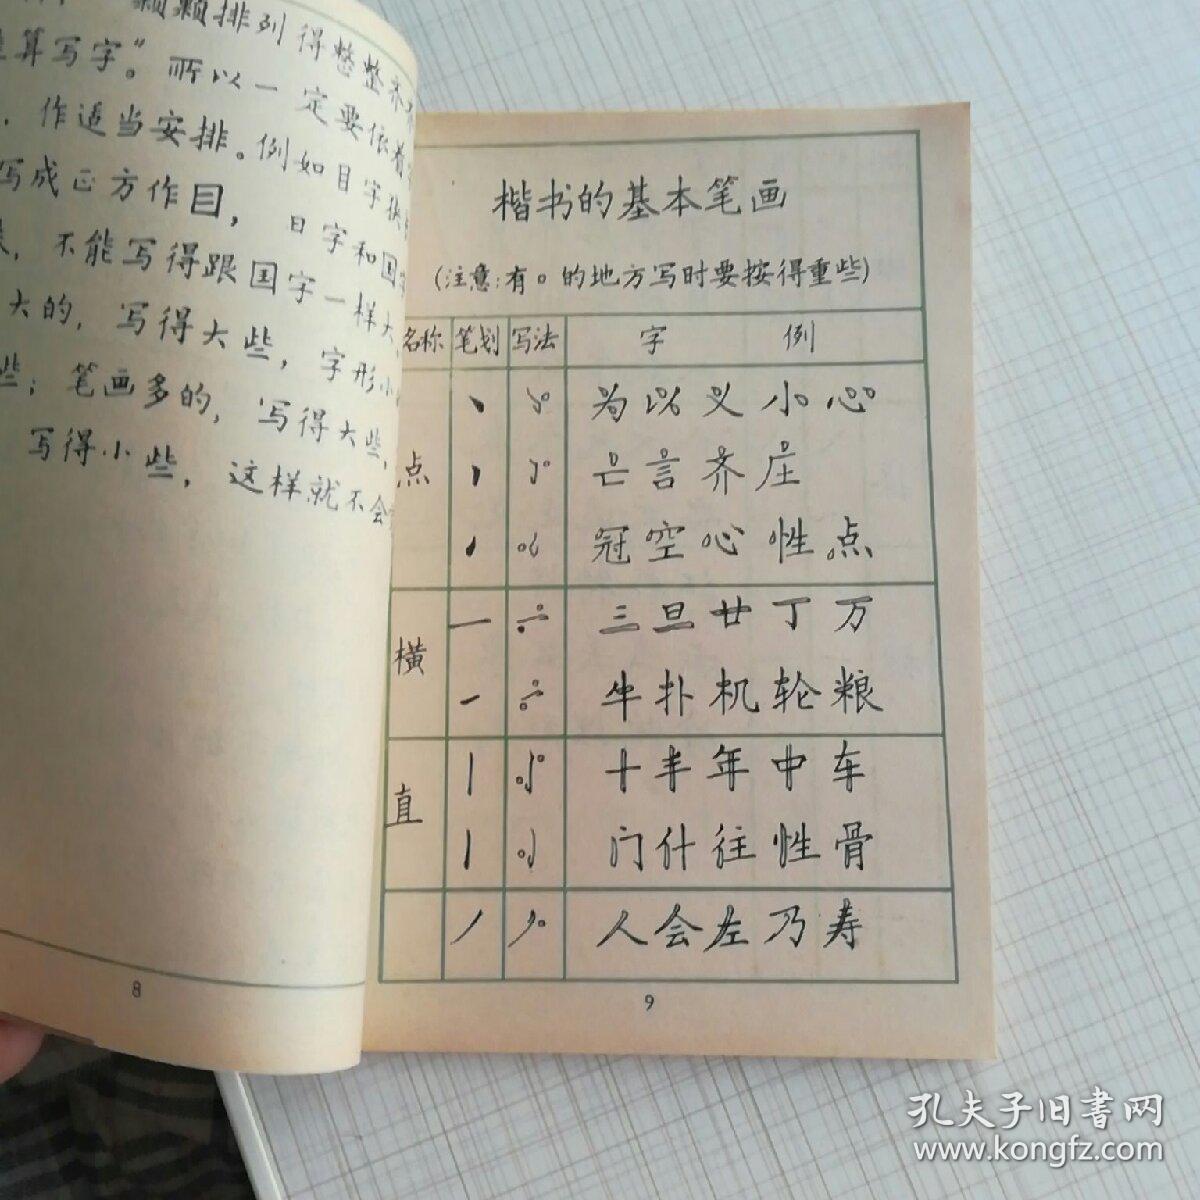 颗颗排列得整整齐齐
算写字”。所以一定要依着
，作适当安排。例如目字
写成正方作目，日字和国字
，不能写得跟国字一样大，
大的，写得大些，字形小
些；笔画多的，写得大些，
写得小些，这样就不会
8
楷书的基本笔画
(注意:有。的地方写时要按得重些)
名称 笔划 写法 字 例
为以义小心
点 亡言齐庄
冠空心性点
三旦廿丁万
横 牛扑机轮粮
十半年中车
直 门什往性骨
人会左乃寿
9
孔夫子旧书网
www.kongfz.com